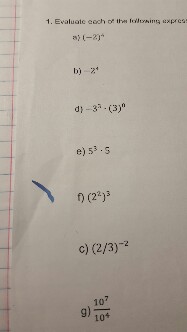 1. Evaluate each of the following express
a) (−2)⁴
b) −2⁴
d) −3³ · (3)⁰
e) 5³ · 5
f) (2²)³
c) (2/3)⁻²
g) 10⁷/10⁴